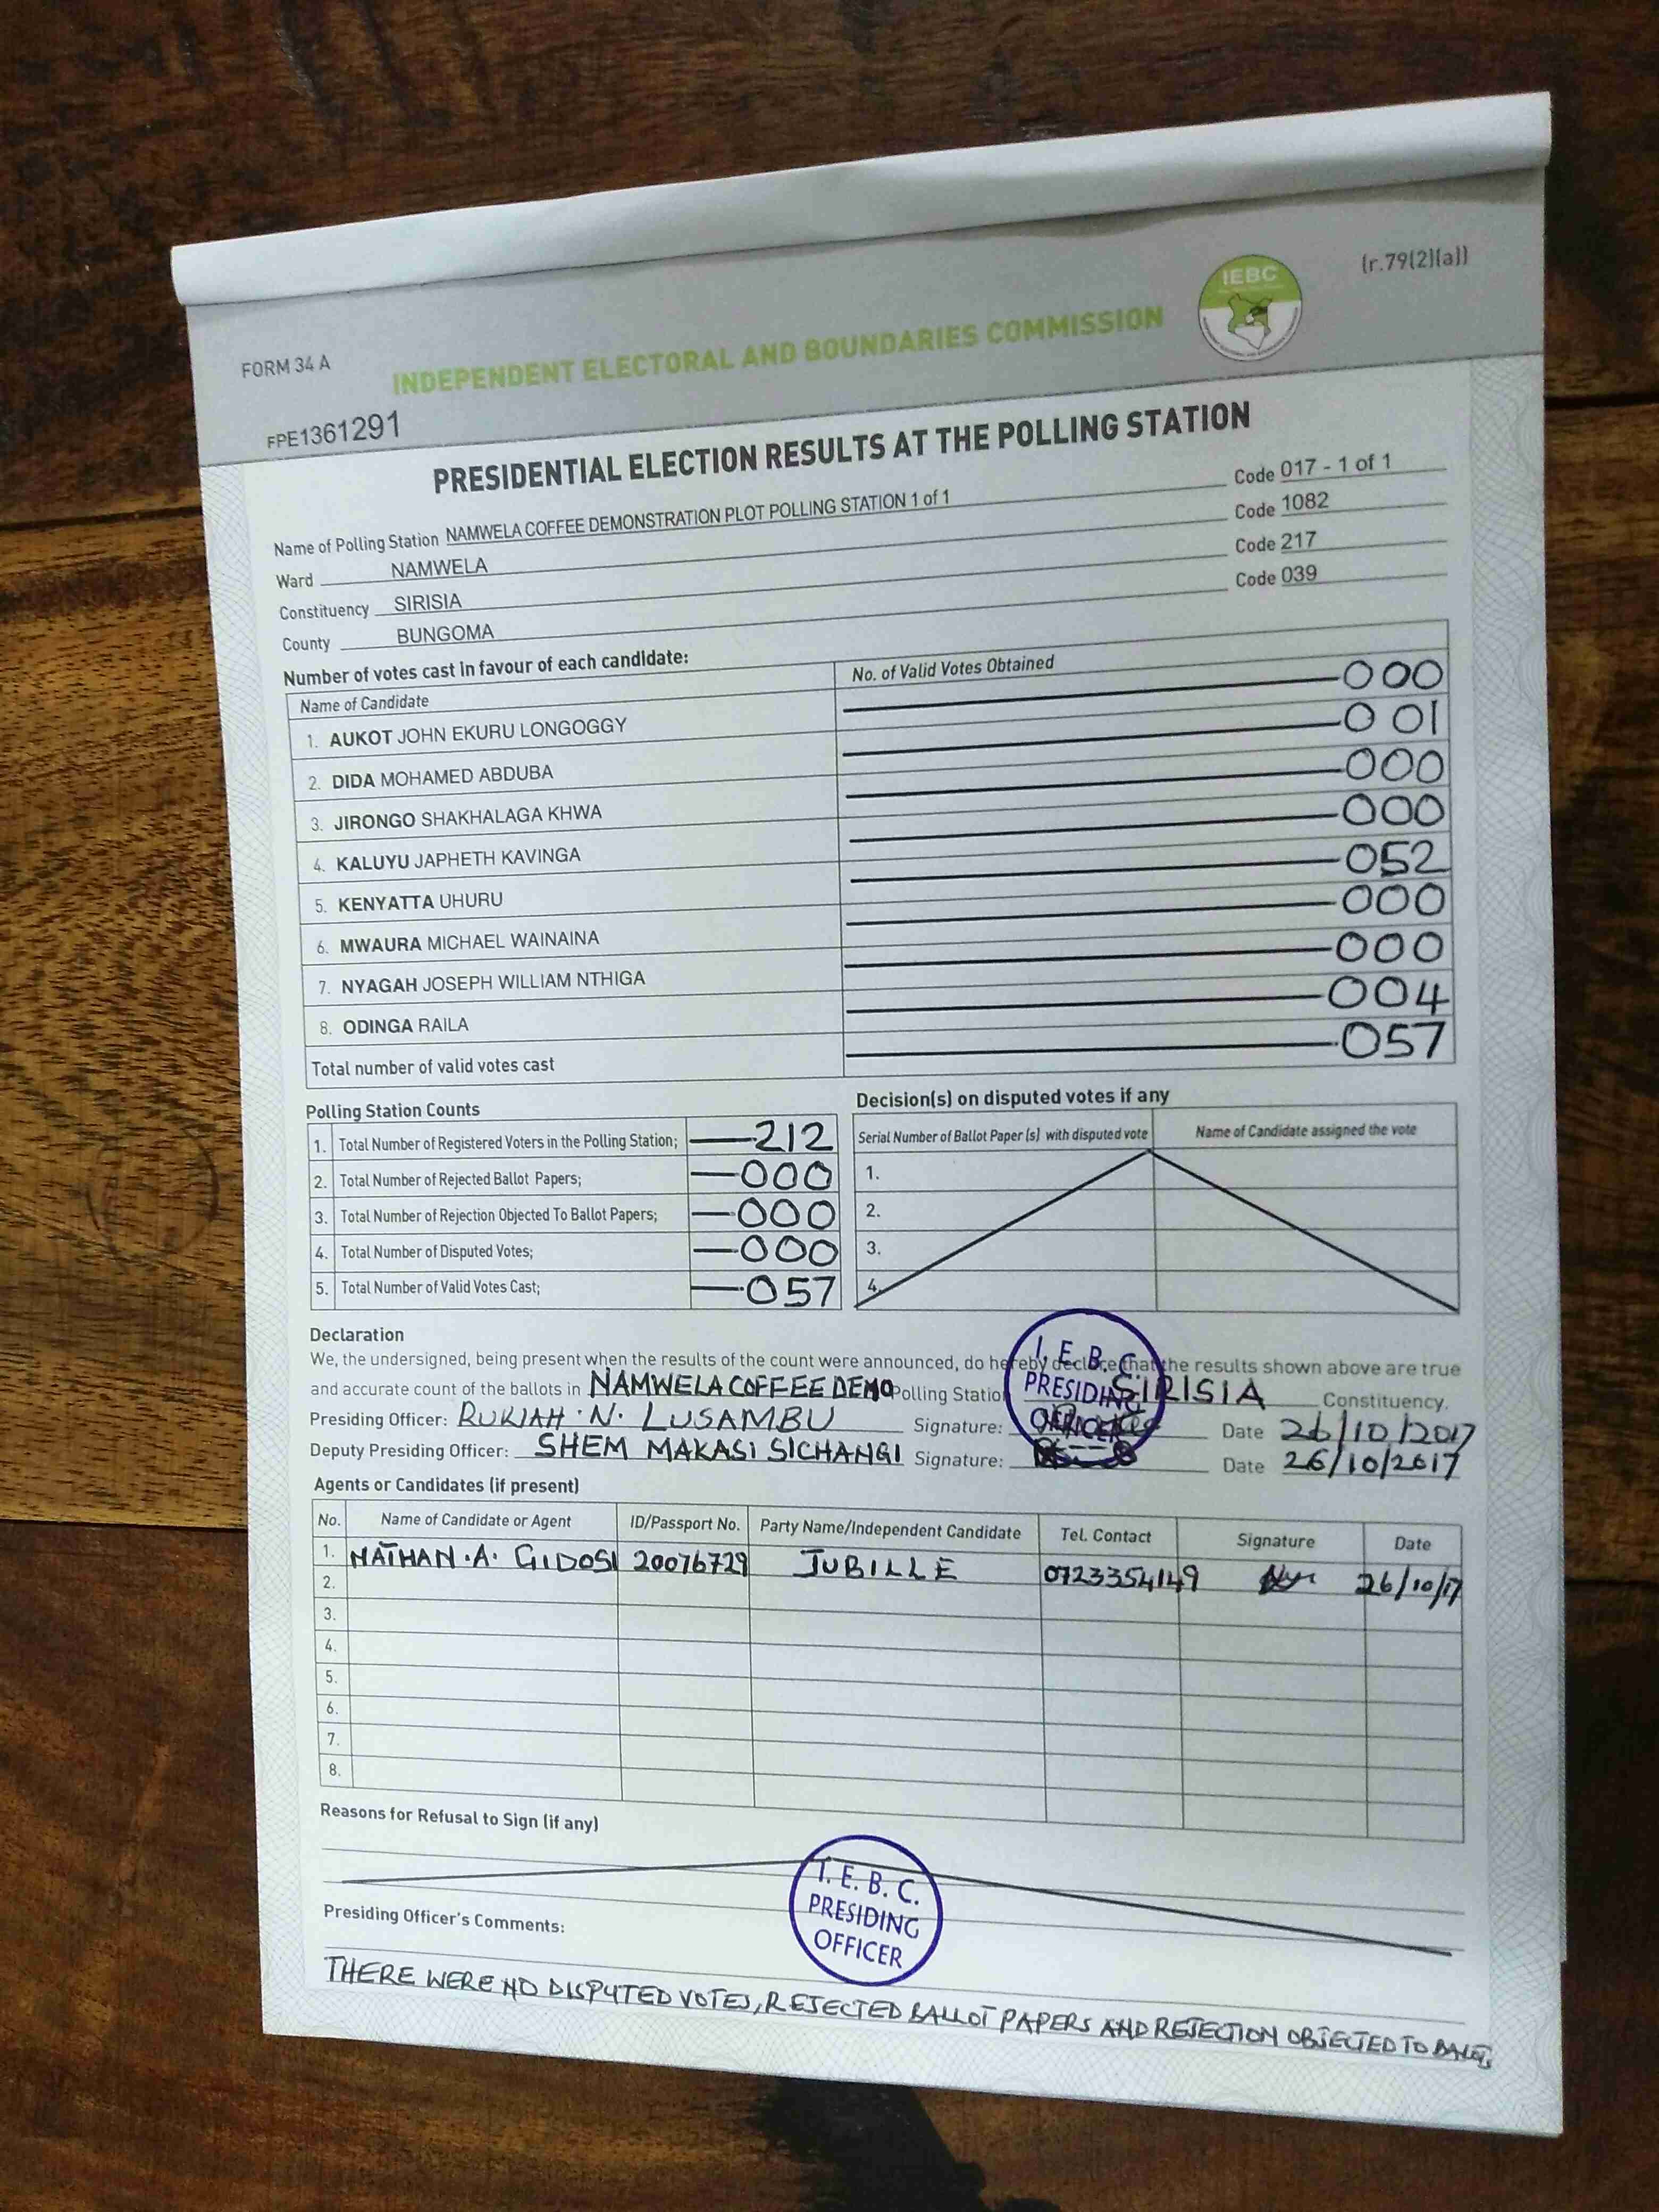 (r.79(2)(a))
IEBC
FORM 34 A
INDEPENDENT ELECTORAL AND BOUNDARIES COMMISSION
FPE1361291
PRESIDENTIAL ELECTION RESULTS AT THE POLLING STATION
Name of Polling Station NAMWELA COFFEE DEMONSTRATION PLOT POLLING STATION 1 of 1 Code 017 - 1 of 1
Ward NAMWELA Code 1082
Constituency SIRISIA Code 217
County BUNGOMA Code 039
Number of votes cast in favour of each candidate:
Name of Candidate No. of Valid Votes Obtained
1. AUKOT JOHN EKURU LONGOGGY 000
2. DIDA MOHAMED ABDUBA 001
3. JIRONGO SHAKHALAGA KHWA 000
4. KALUYU JAPHETH KAVINGA 000
5. KENYATTA UHURU 052
6. MWAURA MICHAEL WAINAINA 000
7. NYAGAH JOSEPH WILLIAM NTHIGA 000
8. ODINGA RAILA 004
Total number of valid votes cast 057
Polling Station Counts
1. Total Number of Registered Voters in the Polling Station; 212
2. Total Number of Rejected Ballot Papers; 000
3. Total Number of Rejection Objected To Ballot Papers; 000
4. Total Number of Disputed Votes; 000
5. Total Number of Valid Votes Cast; 057
Decision(s) on disputed votes if any
Serial Number of Ballot Paper (s) with disputed vote Name of Candidate assigned the vote
1.
2.
3.
4.
Declaration
We, the undersigned, being present when the results of the count were announced, do hereby declare that the results shown above are true
and accurate count of the ballots in NAMWELA COFFEE DEMO Polling Station SIRISIA Constituency.
Presiding Officer: RUKIAH .N. LUSAMBU Signature: Date 26/10/2017
Deputy Presiding Officer: SHEM MAKASI SICHANGI Signature: Date 26/10/2017
I. E. B. C.
PRESIDING
OFFICER
Agents or Candidates (if present)
No. Name of Candidate or Agent ID/Passport No. Party Name/Independent Candidate Tel. Contact Signature Date
1. NATHAN .A. GIDOSI 20076729 JUBILLE 0723354149 26/10/17
2.
3.
4.
5.
6.
7.
8.
Reasons for Refusal to Sign (if any)
I. E. B. C.
PRESIDING
OFFICER
Presiding Officer's Comments:
THERE WERE NO DISPUTED VOTES, REJECTED BALLOT PAPERS AND REJECTION OBJECTED TO